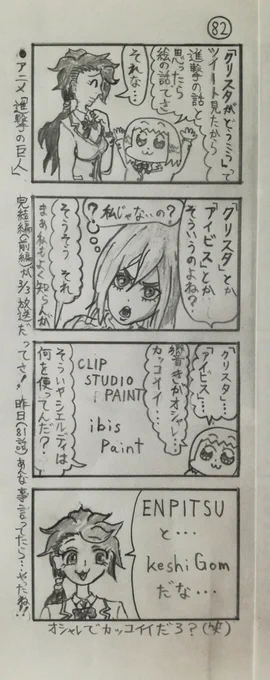 82
「クリスタがどうこう」って
ツイート見たから
進撃の話と
思ったら
絵の話でさ
それな…
「クリスタ」とか
「アイビス」とか
そういうのよね?
私じゃないの?
?
?
そうそう それ
まあ私もよく知らんが
「クリスタ」…
「アイビス」…
響きがオシャレ…
カッコイイ…
CLIP
STUDIO
PAINT
ibis
Paint
そういやシエルティは
何を使ってんだ?
ENPITSU
と…
keshiGom
だな…
オシャレでカッコイイだろ?(笑)
●アニメ「進撃の巨人」
完結編(前編)が3/3放送だってさ!
昨日(81話)あんな事言ってたら…やったね!!